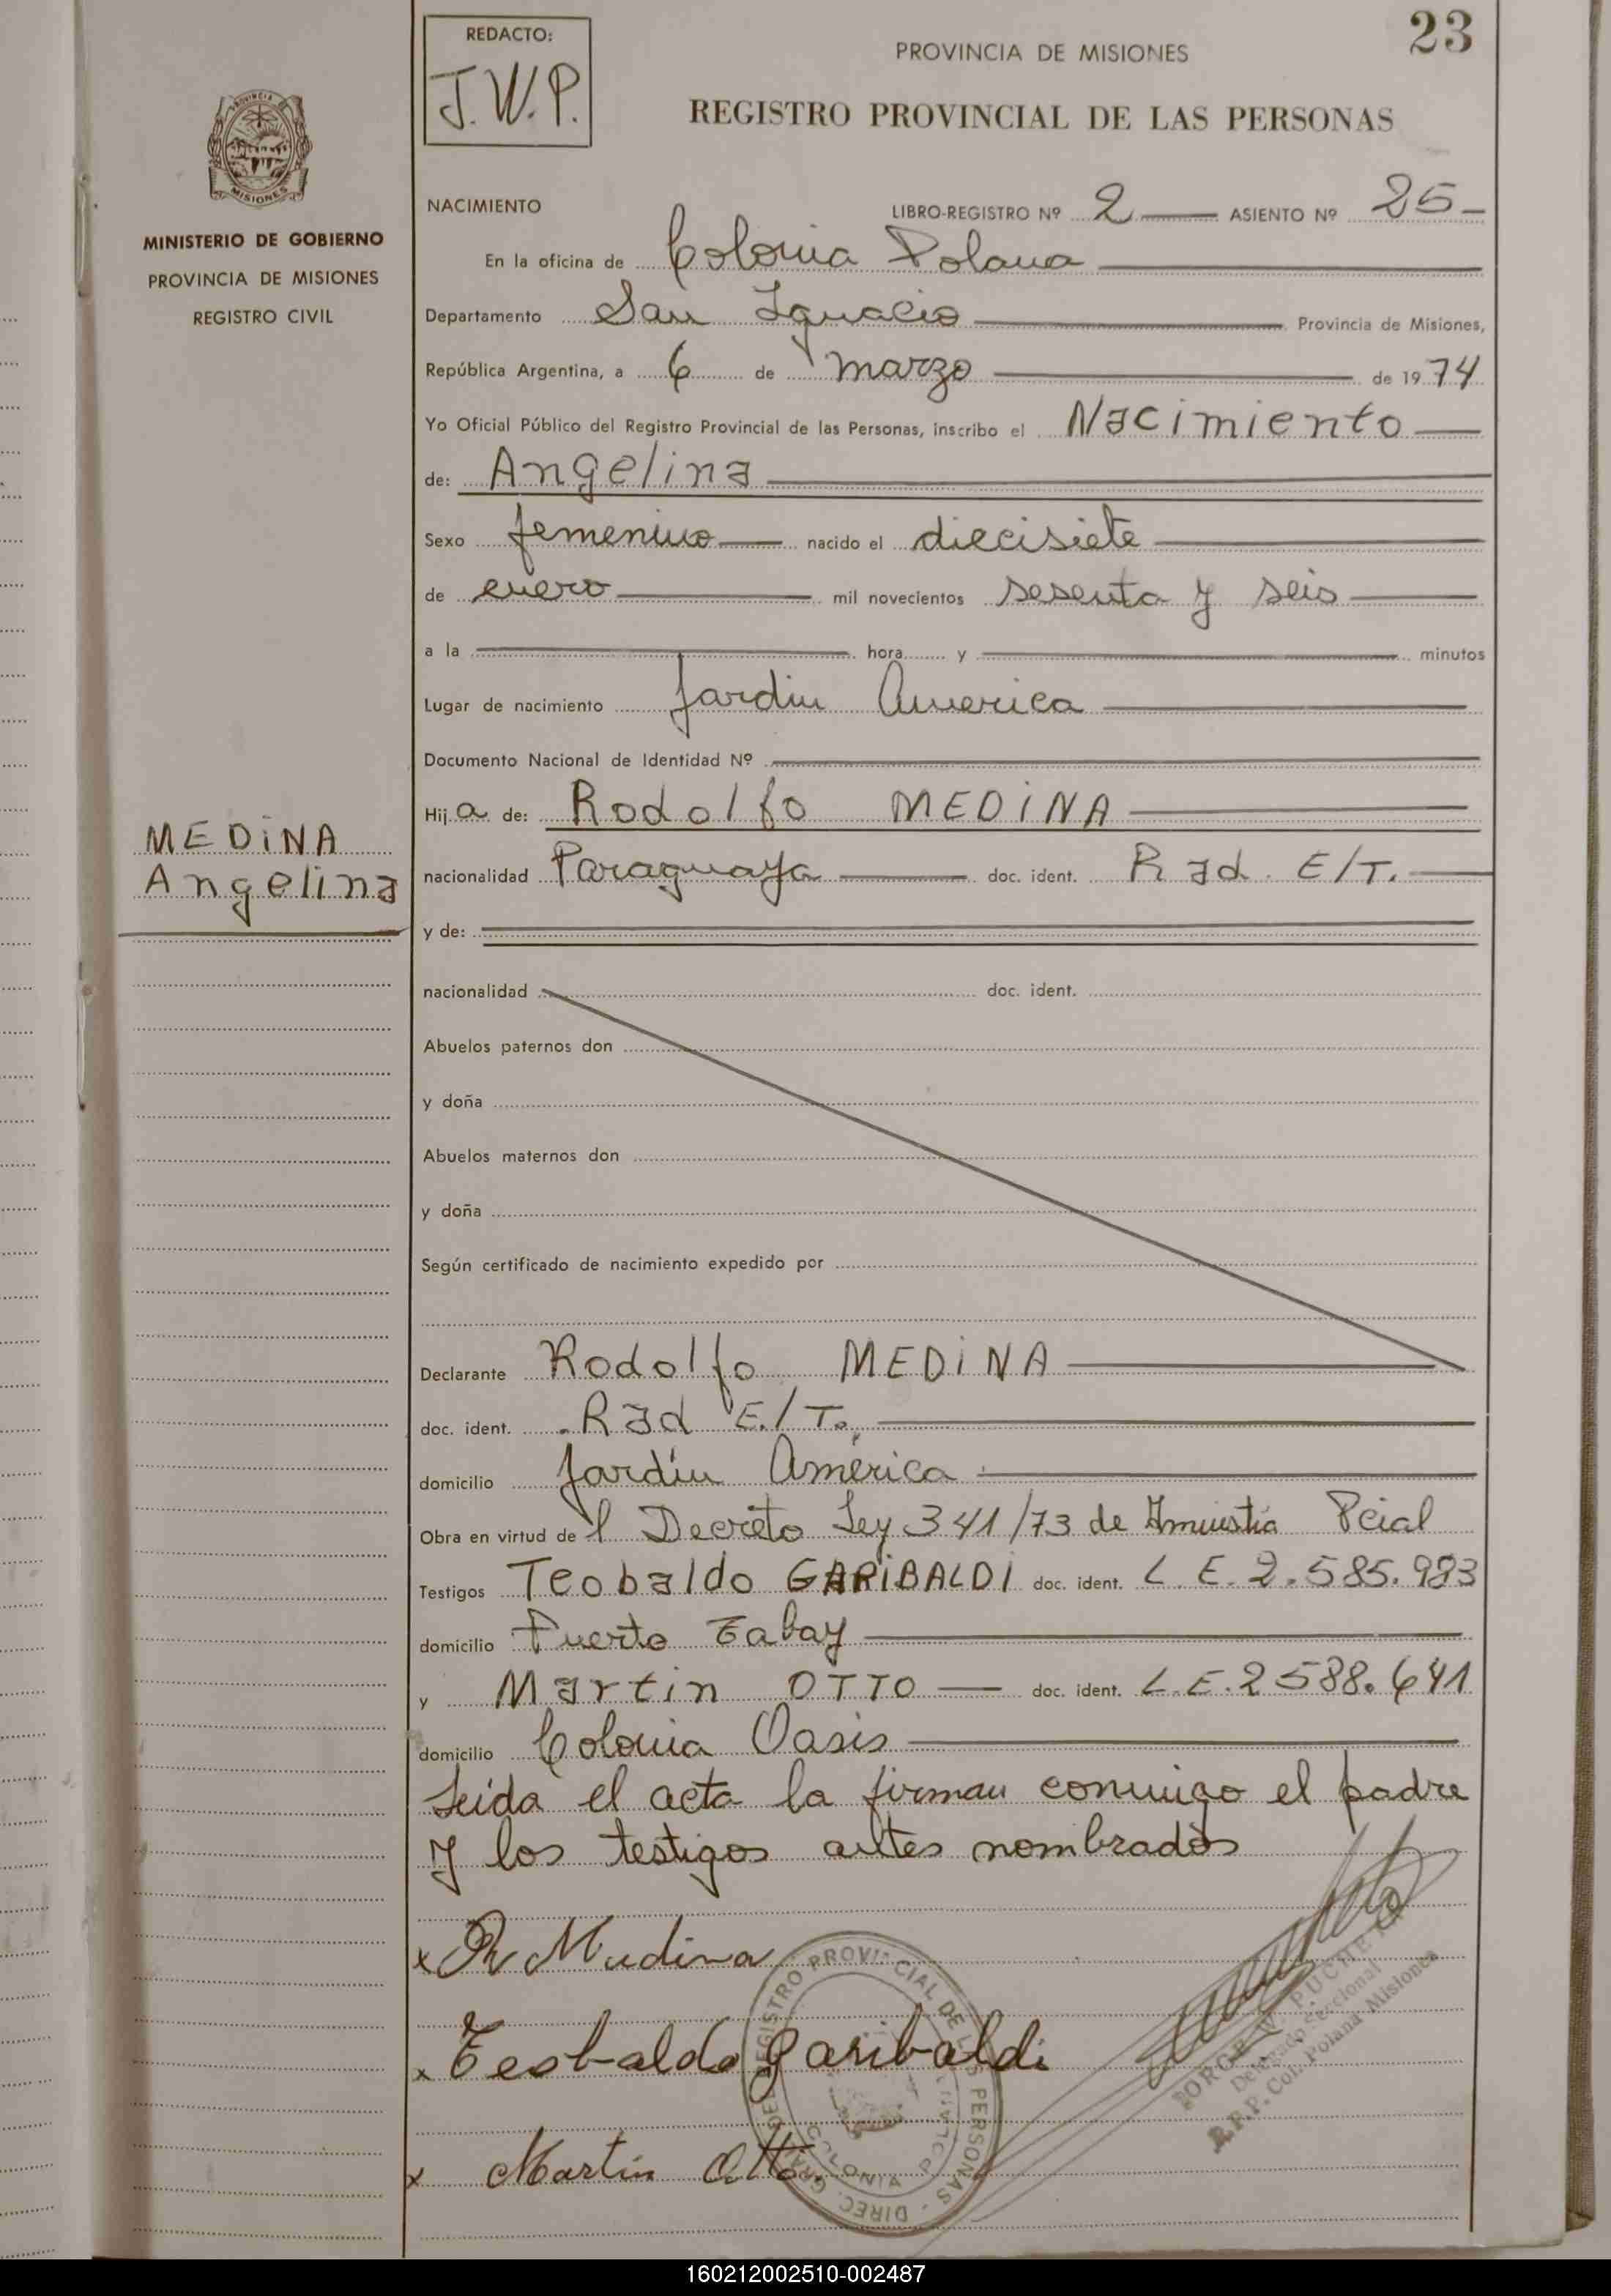 23
REDACTO:
J.W.P.
PROVINCIA DE MISIONES
REGISTRO PROVINCIAL DE LAS PERSONAS
MISIONES
MINISTERIO DE GOBIERNO
PROVINCIA DE MISIONES
REGISTRO CIVIL
NACIMIENTO LIBRO-REGISTRO Nº 2 ASIENTO Nº 25
En la oficina de Colonia Polana
Departamento San Ignacio Provincia de Misiones,
República Argentina, a 6 de marzo de 1974
Yo Oficial Público del Registro Provincial de las Personas, inscribo el Nacimiento
de: Angelina
Sexo femenino nacido el diecisiete
de enero mil novecientos sesenta y seis
a la hora y minutos
Lugar de nacimiento Jardin America
Documento Nacional de Identidad Nº
Hija de: Rodolfo MEDINA
MEDINA
Angelina
nacionalidad Paraguaya doc. ident. Rad. E/T.
y de:
nacionalidad doc. ident.
Abuelos paternos don
y doña
Abuelos maternos don
y doña
Según certificado de nacimiento expedido por
Declarante Rodolfo MEDINA
doc. ident. Rad E./T.
domicilio Jardín América
Obra en virtud de l Decreto Ley 341/73 de Amnistía Pcial
Testigos Teobaldo GARIBALDI doc. ident. L.E. 2.585.983
domicilio Puerto Tabay
y Martin OTTO doc. ident. L.E. 2588.641
domicilio Colonia Oasis
Leída el acta la firman conmigo el padre
y los testigos antes nombrados
x R Medina
x Teobaldo Garibaldi
x Martin Otto
JORGE W. PUCHETA
Delegado Seccional
R.P.P. Col. Polana-Misiones
160212002510-002487